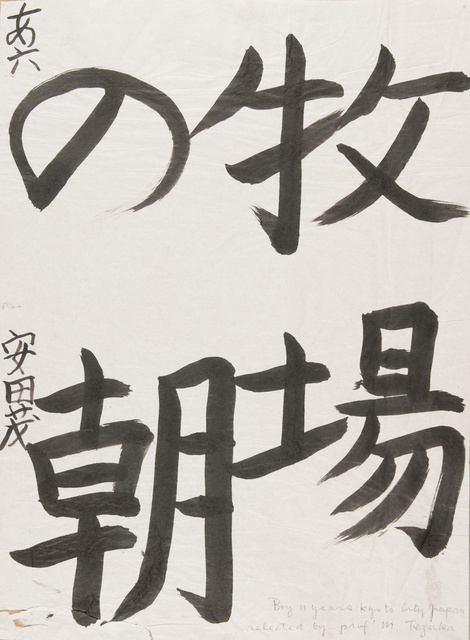 牧場
の朝
あ六
安田茂
Boy 11 years Kyoto City Japan
selected by prof M.